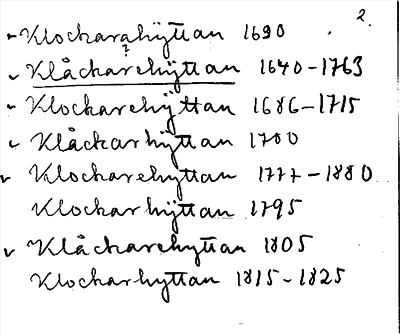 2.
Klockarahÿttan 1690
?
Klåckarehÿttan 1640-1763
Klockarehÿttan 1686-1715
Klåckarhÿttan 1700
Klockarehyttan 1777-1880
Klockarhÿttan 1795
Klåckarehyttan 1805
Klockarhyttan 1815-1825